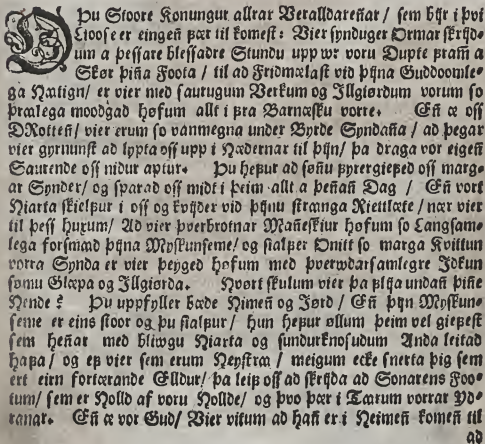 O Þu Stoore Konungur allrar Veralldareñar / sem byr i þvi
Lioose er eingeñ þær til komest: Vier synduger Ormar skrijd-
um a þessare blessadre Stundu upp wr voru Dupte fram a
Skør þiña Foota / til ad Fridmælast vid þijna Guddoomle-
ga Hætign/ er vier med saurugum Verkum og Illgiørdum vorum so
þrælega moodgad høfum allt i fra Barnæsku vorre. Eñ æ oss
DRotteñ/ vier erum so vanmegna under Byrde Syndaña / ad þegar
vier gyrnunst ad lypta oss upp i Hædernar til þijn/ þa draga vor eigeñ
Saurende oss nidur aptur. Þu hefur ad sønu fyrergiefed oss marg-
ar Synder/ og sparad oss midt i þeim allt a þeñañ Dag / Eñ vort
Hiarta skielfur i oss og kvijder vid þijnu stranga Riettlæte / nær vier
til þess huxum/ Ad vier þverbrotnar Mañeskiur høfum so Langsam-
lega forsmæd þijna Myskunseme/ og sialfer Onitt so marga Kvittun
vorra Synda er vier þeiged høfum med þverwdarsamlegre Idkun
sømu Glæpa og Illgiørda. Hvort skulum vier þa flya undañ þiñe
Hende? Þu uppfyller bæde Himeñ og Jørd / Eñ þijn Myskun-
seme er eins stoor og þu sialfur / hun hefur øllum þeim vel giefest
sem heñar med bliwgu Hiarta og sundurknosudum Anda leitad
hafa / og ef vier sem erum Heystræ / meigum ecke snerta þig sem
ert eirn fortærande Elldur/ þa leif oss ad skrijda ad Sonarens Foo-
tum/ sem er Holld af voru Hollde/ og þvo þær i Tærum vorrar Yd-
ranar. Eñ æ vor Gud/ Vier vitum ad hañ er i Heimeñ komeñ til
ad